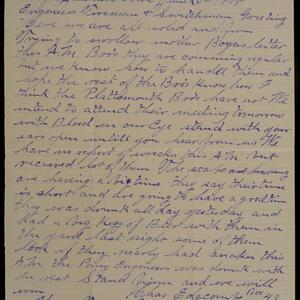 Engineers Fireman & Switchman Greeting
we are all solid and firm
Trying to swallow another Bogus letter
this A.M. Boys they are coming regular
but we know how to handle them and
hope the rest of the Boys know how I
think the Plattsmouth Boys have not We
intend to attend their meeting tomorrow
with Blood in our Eye stand with your
ears open untill you hear from us We
have no report of wrecks this A.M. but
received lots of them The scabs
are having a big time they say their time
is short and are going to have a good time
they was drunk all day yesterday and
had a long Kegg of Beer with them in
the yard last night some of them
look if they nearly had snakes this
A.M. the Poney Engineer was drunk with
the rest Stand firm and we will
win Chas